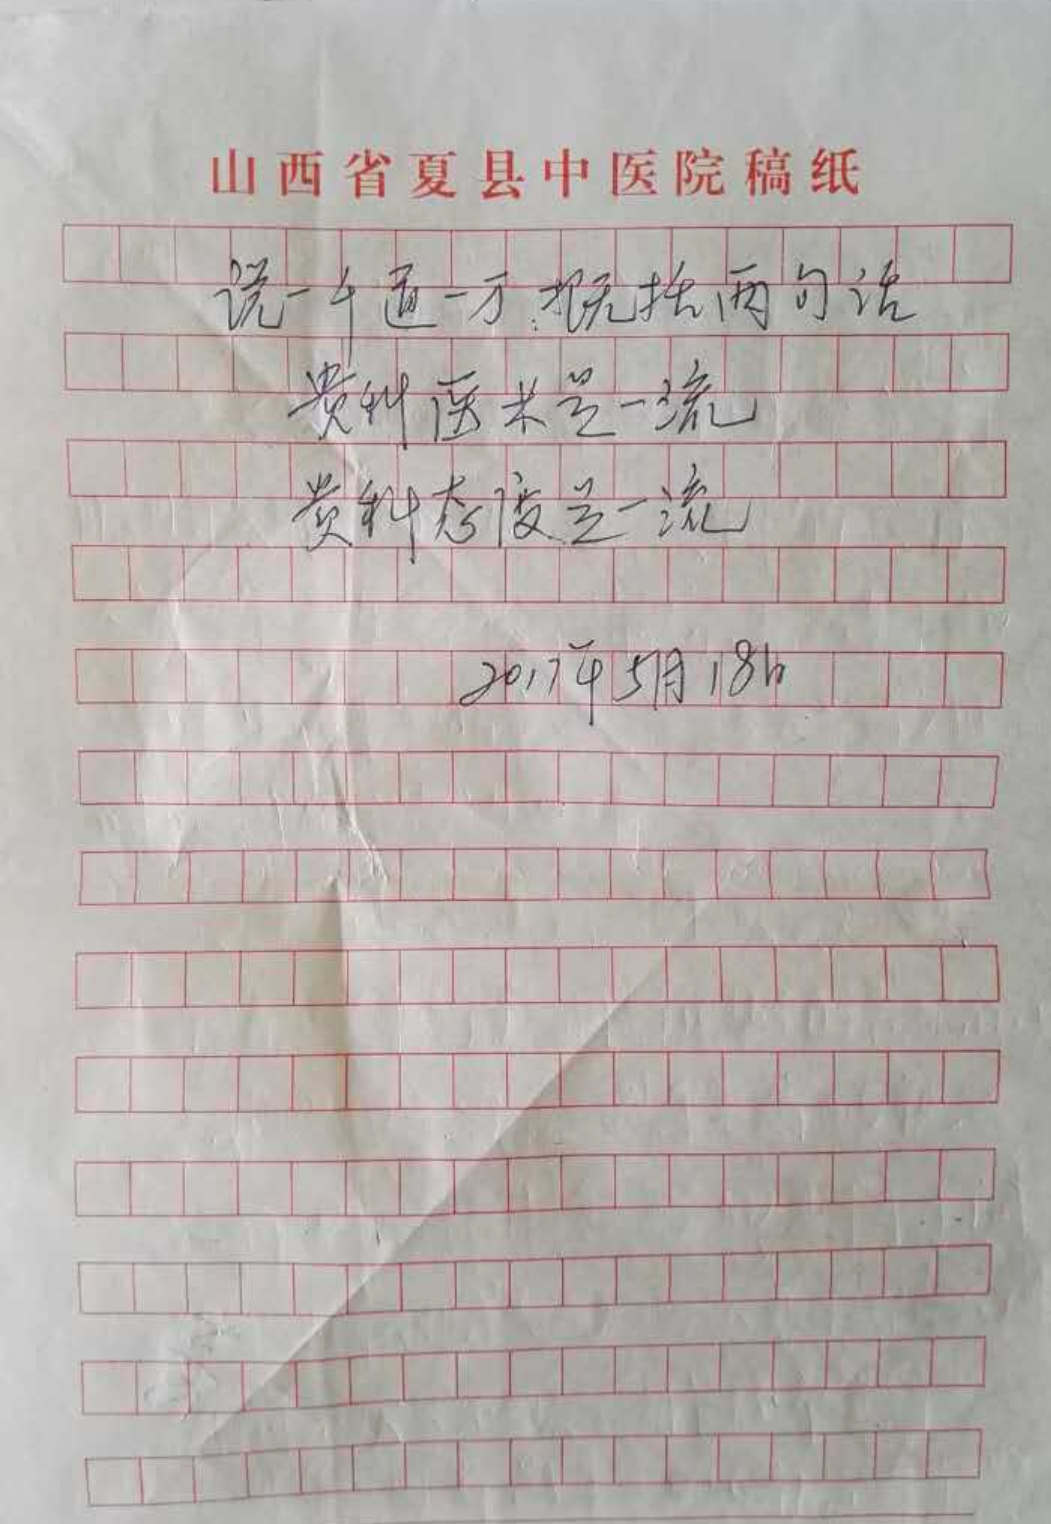 山西省夏县中医院稿纸
说一千道一万概括两句话
贵科医术是一流
贵科态度是一流
2017年5月18日